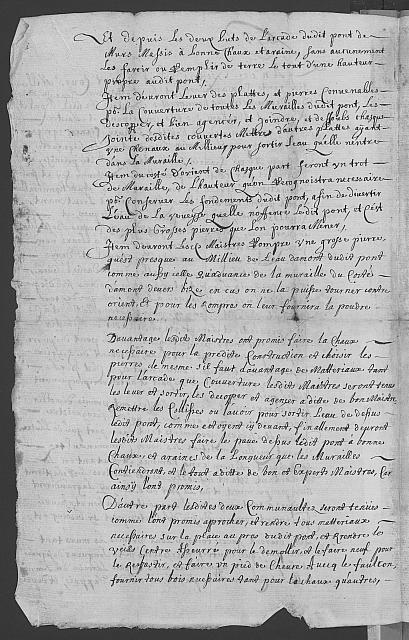 Et depuis les deux buts de l'arcade dudit pont de
Murs Massis à bonne Chaux et araine, sans aucunement
les farcir ou Remplir de terre le tout d'une hauteur
propre audit pont,
Item devront lever des plattes, et pierres Convenables
po.r la Couverture de toutes les Murailles dudit pont, les
descoper, et bien agencer, et joindre, et dessoubs chasque
Jointe desdites couvertes Mettre d'autres plattes ayant
une Chenaux au Millieu pour sortir l'eau qu'elle n'entre
dans la Muraille,
Item du costé d'orient de Chasque part feront un trot
de Muraille, de l'hauteur qu'on Recognoistra necessaire
po.r Conserver les fondements dudit pont, afin de divertir
l'eau de la qu'elle n'offence ledit pont, et C'est
des plus Grosses pierres que l'on pourra Mener,
Item devront lesd. Maistres Rompre une grosse pierre
qu'est presque au Millieu de l'eau d'amont dudit pont
comme aussy celle qu'advance de la muraille du Costé
d'amont devers bize en cas on ne la puisse tourner contre
orient, et pour les Rompre on leur fournira la poudre
necessaire.
Davantage lesdits Maistres ont promis faire la Chaux
necessaire pour la predite Construction et choisir les
pierres de mesme s'il faut davantage de Matteriaux tant
pour l'arcade que Couverture lesdits Maistres seront tenus
les lever et sortir, les decopper et agencer a ditte de bon Maistre
Remettre les Collisses ou lavoir pour sortir l'eau de dessus
ledit pont, comme estoyent cy devant, finallement devront
lesdits Maistres faire le pavé dessus ledit pont à bonne
Chaux, et araines de la Longueur que les Murailles
Contiendront, et le tout a ditte de bon et Experts Maistres, Car
ainsy l'ont promis,
D'autre part lesdites deux Communautez seront tenues
comme l'ont promis aprocher, et rendre tous metteriaux
necessaires sur la place au pres dudit pont, et Rendre les
vieils Centre pour le demollir, et le faire neuf pour
le Restastir, et faire un pied de Chevre avecq le faulcon,
fournir tous bois necessaires tant pour la chaux qu'autres,